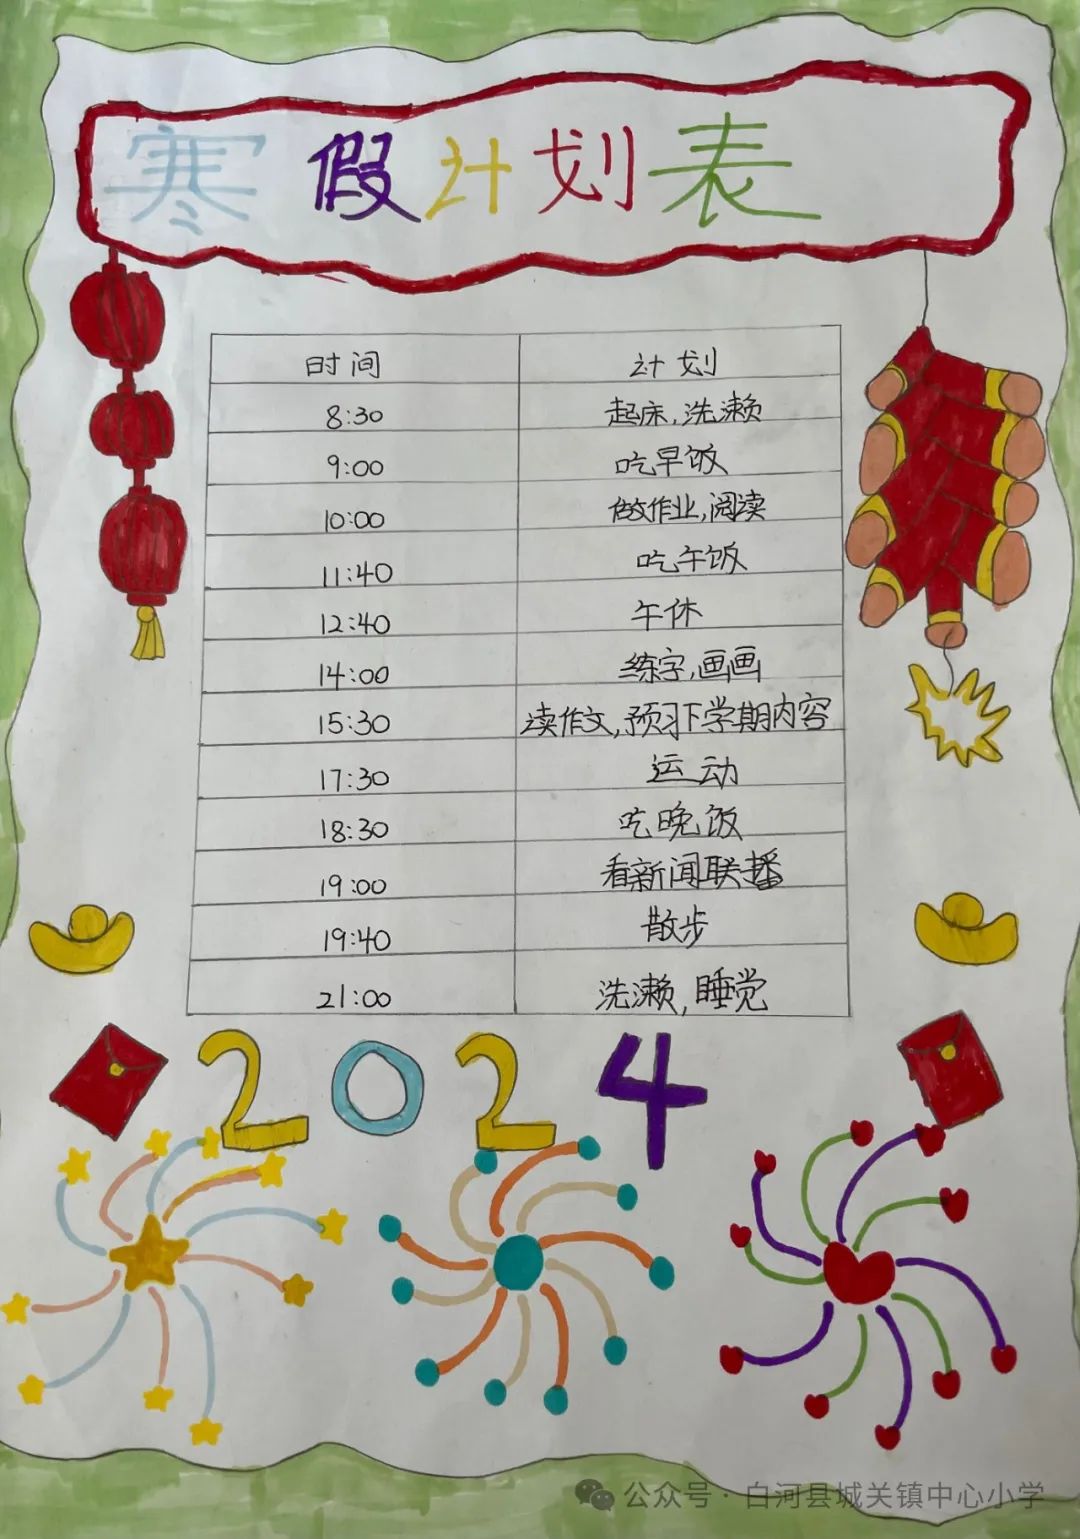 寒假计划表
时间 计划
8:30 起床,洗濑
9:00 吃早饭
10:00 做作业,阅读
11:40 吃午饭
12:40 午休
14:00 练字,画画
15:30 读作文,预习下学期内容
17:30 运动
18:30 吃晚饭
19:00 看新闻联播
19:40 散步
21:00 洗濑,睡觉
2024
公众号·白河县城关镇中心小学